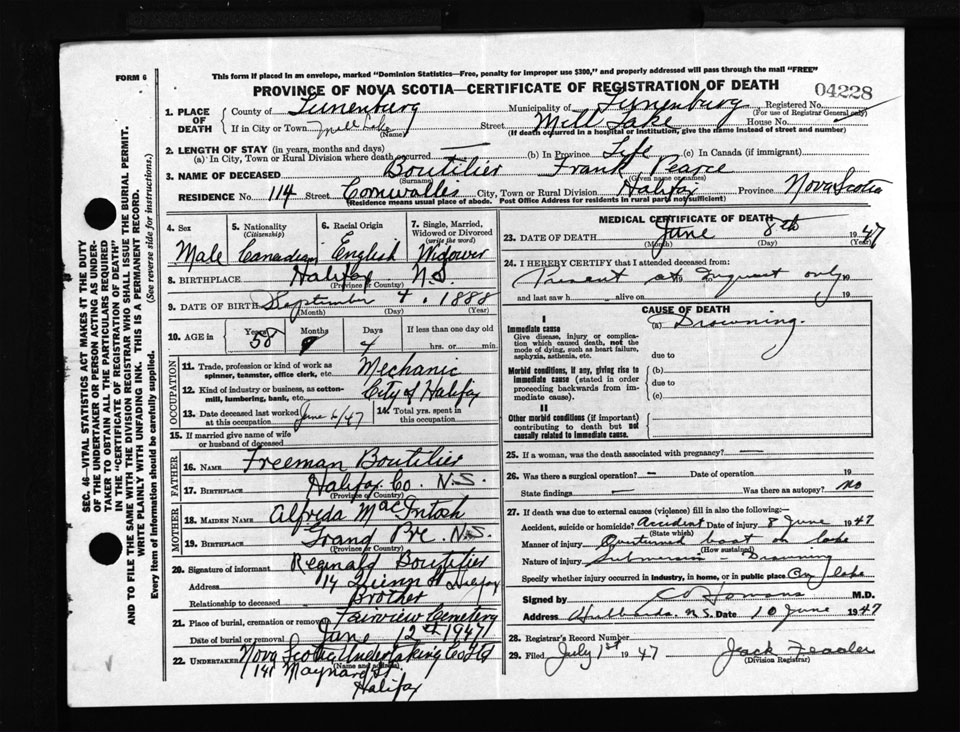 FORM 6
This form if placed in an envelope, marked "Dominion Statistics—Free, penalty for improper use $300," and properly addressed will pass through the mail "FREE"
PROVINCE OF NOVA SCOTIA—CERTIFICATE OF REGISTRATION OF DEATH
04228
1. PLACE OF DEATH County of Lunenburg Municipality of Lunenburg Registered No.
(For use of Registrar General only)
If in City or Town Mill Lake (Name) Street Mill Lake House No.
(If death occurred in a hospital or institution, give the name instead of street and number)
2. LENGTH OF STAY (in years, months and days)
(a) In City, Town or Rural Division where death occurred — (b) In Province Life (c) In Canada (if immigrant)
3. NAME OF DECEASED Boutilier Frank Pearce
(Surname) (Given name or names)
RESIDENCE No. 114 Street Cornwallis City, Town or Rural Division Halifax Province Nova Scotia
(Residence means usual place of abode. Post Office Address for residents in rural parts not sufficient)
4. Sex 5. Nationality (Citizenship) 6. Racial Origin 7. Single, Married, Widowed or Divorced (write the word)
Male Canadian English Widower
8. BIRTHPLACE Halifax N.S.
(Province or Country)
9. DATE OF BIRTH September 4. 1888
(Month) (Day) (Year)
10. AGE in Years Months Days If less than one day old
58 9 4 hrs. or min.
OCCUPATION
11. Trade, profession or kind of work as spinner, teamster, office clerk, etc. Mechanic
12. Kind of industry or business, as cotton-mill, lumbering, bank, etc. City of Halifax
13. Date deceased last worked at this occupation June 6/47 14. Total yrs. spent in this occupation
15. If married give name of wife or husband of deceased
FATHER
16. NAME Freeman Boutilier
17. BIRTHPLACE Halifax Co. N.S.
(Province or Country)
MOTHER
18. MAIDEN NAME Alfreda MacIntosh
19. BIRTHPLACE Grand Pre. N.S.
(Province or Country)
20. Signature of informant Reginald Boutilier
Address 14 St Halifax
Relationship to deceased Brother
21. Place of burial, cremation or removal Fairview Cemetery
Date of burial or removal June 12th 1947
22. UNDERTAKER Nova Scotia Undertaking Co Ltd
(Name and address)
Maynard St
Halifax
MEDICAL CERTIFICATE OF DEATH
23. DATE OF DEATH June 8th 1947
(Month) (Day) (Year)
24. I HEREBY CERTIFY that I attended deceased from:
Present at Inquest only 19
and last saw h alive on 19
CAUSE OF DEATH
I
Immediate cause (a) Drowning.
Give disease, injury or complication which caused death, not the mode of dying, such as heart failure, asphyxia, asthenia, etc. due to
Morbid conditions, if any, giving rise to immediate cause (stated in order proceeding backwards from immediate cause). (b)
due to
(c)
II
Other morbid conditions (if important) contributing to death but not causally related to immediate cause.
25. If a woman, was the death associated with pregnancy? —
26. Was there a surgical operation? — Date of operation 19
State findings — Was there an autopsy? no
27. If death was due to external causes (violence) fill in also the following:
Accident, suicide or homicide? accident Date of injury 8 June 1947
(State which)
Manner of injury Overturned boat on lake
(How sustained)
Nature of injury Submersion - Drowning
Specify whether injury occurred in industry, in home, or in public place On lake
Signed by M.D.
Address Hubbards, N.S. Date 10 June 1947
28. Registrar's Record Number
29. Filed July 1st 1947 Jack
(Division Registrar)
SEC. 46—VITAL STATISTICS ACT MAKES IT THE DUTY
OF THE UNDERTAKER OR PERSON ACTING AS UNDER-
TAKER TO OBTAIN ALL THE PARTICULARS REQUIRED
IN THE "CERTIFICATE OF REGISTRATION OF DEATH"
AND TO FILE THE SAME WITH THE DIVISION REGISTRAR WHO SHALL ISSUE THE BURIAL PERMIT.
WRITE PLAINLY WITH UNFADING INK. THIS IS A PERMANENT RECORD.
Every item of information should be carefully supplied. (See reverse side for instructions).